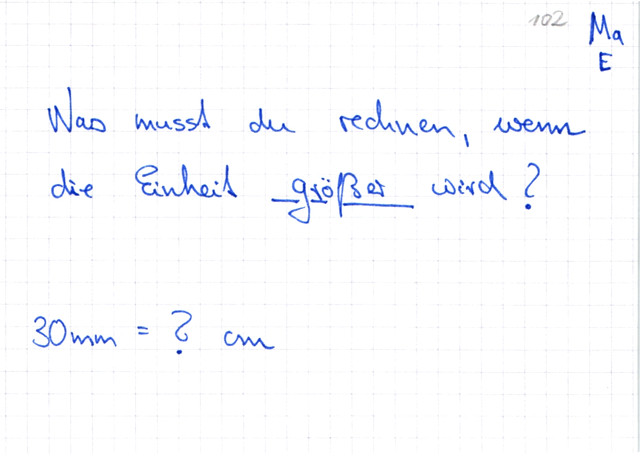 102
Ma
E
Was musst du rechnen, wenn
die Einheit größer wird?
30mm = ? cm